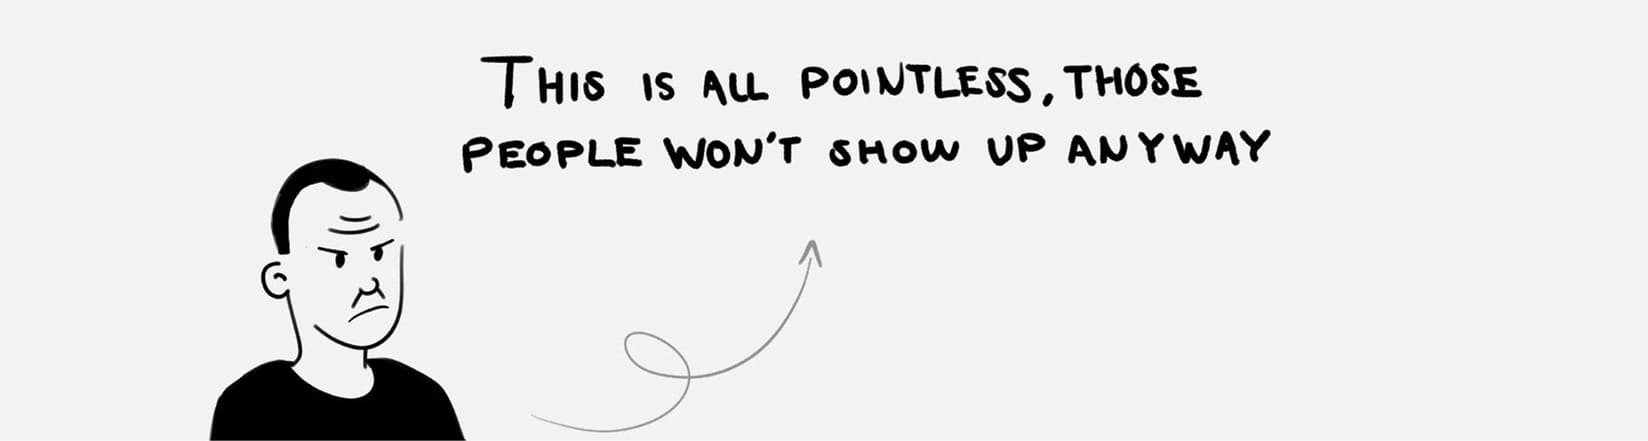 THIS IS ALL POINTLESS, THOSE
PEOPLE WON'T SHOW UP ANYWAY